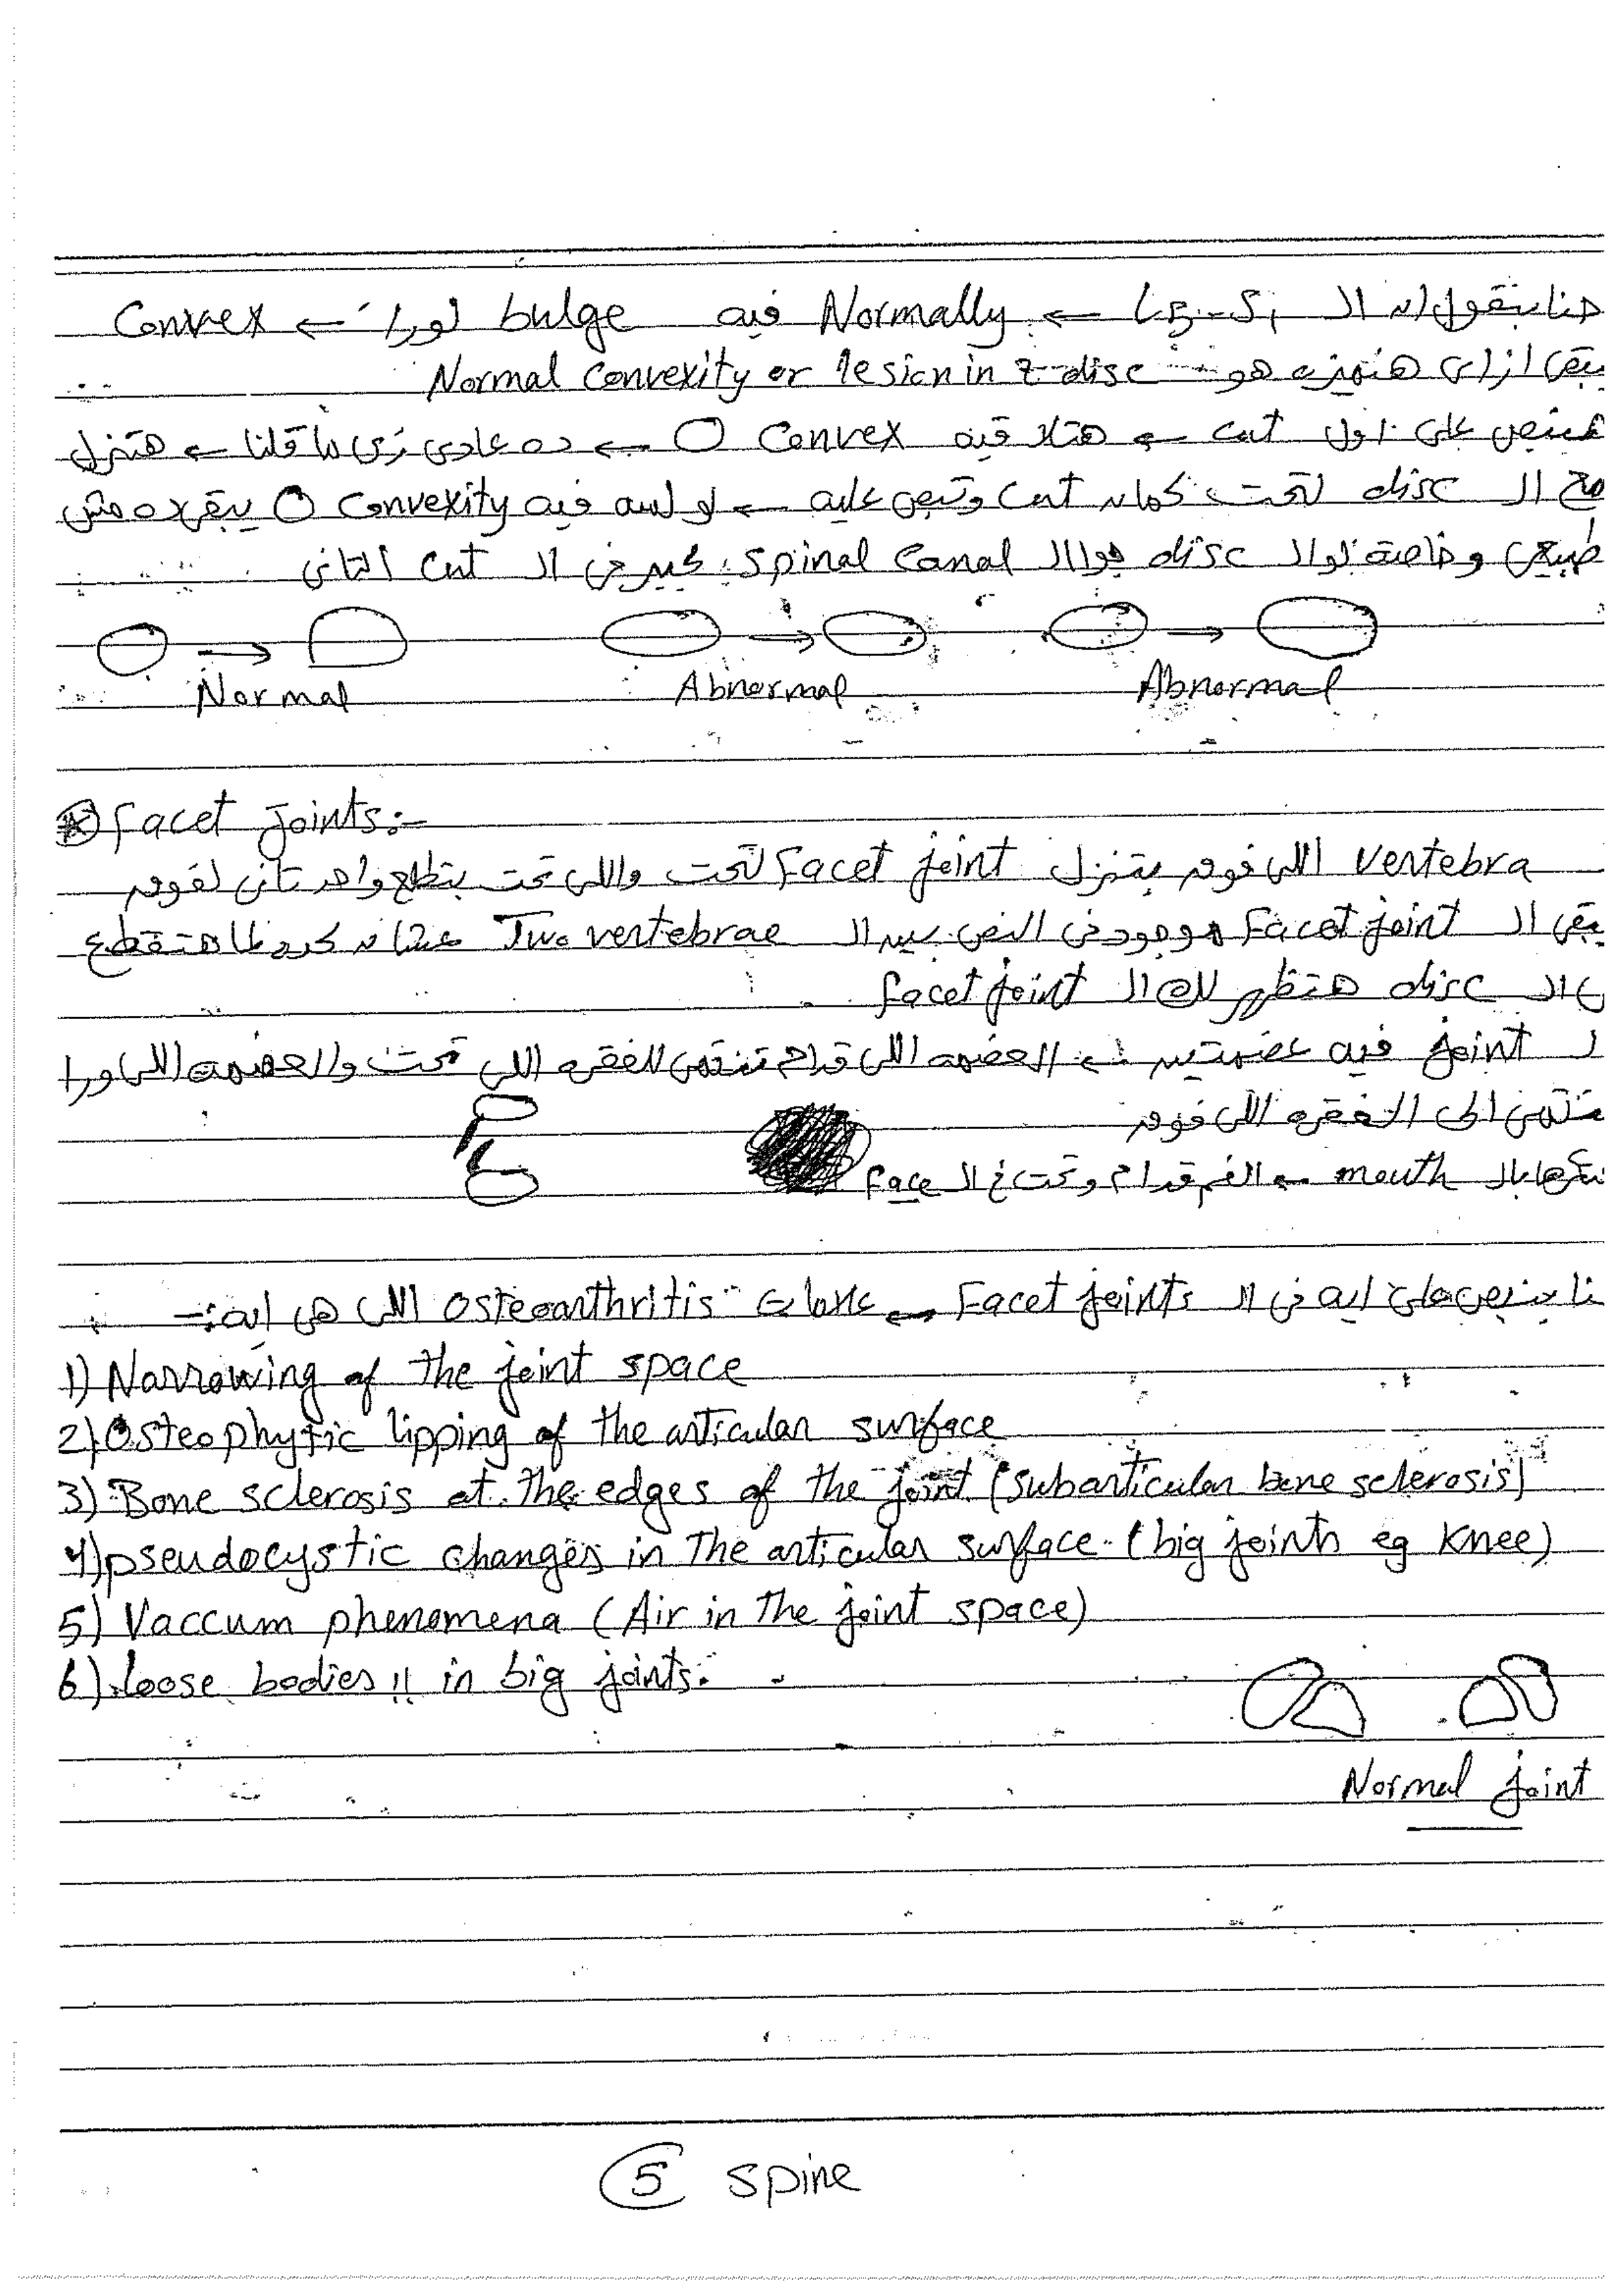 احنا بنقول ان ال L5-S1 ← Normally فيه bulge لورا ← Convex
يبقى ازاى هنميزه هو Normal Convexity or lesion in z disc
هنبص على اول cut ← هتلاقيه Convex ← ده عادى زى ما قلنا ← هتنزل
مع ال disc لتحت كمان cut وتبص عليه ← لو لسه فيه Convexity يبقى ده مش
طبيعى وخاصة لو ال disc جوا ال spinal Canal كبير فى ال cut التانى
Normal Abnormal Abnormal
Facet Joints:-
vertebra اللى فوق بتنزل Facet joint لتحت واللى تحت بتطلع واحد تانى لفوق
يبقى ال Facet joint موجود فى النص بين ال Two vertebrae عشان كده لما هتقطع
ال disc هتظهر لك ال facet joint
joint فيه عضمتين ← العضمه اللى قدام تنتمى للفقره اللى تحت والعضمه اللى ورا
تنتمى الى الفقره اللى فوق
بال mouth ← الفم قدام وتحت فى ال Face
بنبص على ايه فى ال Facet joints ← علامات Osteoarthritis اللى هى ايه :-
1) Narrowing of the joint space
2) Osteophytic lipping of the articular surface
3) Bone sclerosis at the edges of the joint (subarticular bone sclerosis)
4) pseudocystic changes in the articular surface. (big joints eg Knee)
5) Vaccum phenomena (Air in the joint space)
6) loose bodies !! in big joints.
Normal joint
5 spine